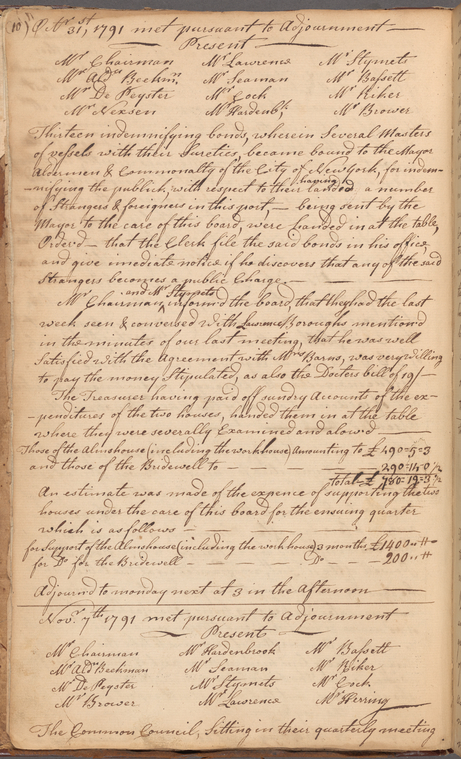 10) Octr 31st, 1791 met pursuant to Adjournment
Present
Mr Chairman Mr Lawrence Mr Stymets
Mr Aldn Beekmn Mr Seaman Mr Bassett
Mr De Peyster Mr Cock Mr Riker
Mr Nixsen Mr Hardenbk, Mr Brower
Thirteen indemnifying bonds, wherein Several Masters
of vessels with their Sureties, became bound to the Mayor
Aldermen & Commonalty of the City of Newyork, for indem-
-nifying the publick, with respect to their having landed a number
of Strangers & foreigners in this port, — being sent by the
Mayor to the care of this board, were handed in at the table,
Order'd — that the Clerk file the said bonds in his office
and give imediate notice if he discovers that any of the said
Strangers becomes a public Charge. —
Mr Chairman, and Mr Stymets inform'd the board, that they had the last
week seen & conversed with Lawrence Boroughs mention'd
in the minutes of our last meeting, that he was well
Satisfied with the Agreement with Mrs Barns, was very willing
to pay the money Stipulated, as also the Docters bill of 19/-
The Treasurer having paid off sundry Accounts of the ex-
-penditures of the two houses, handed them in at the table
where they were severally Examined and alowd —
Those of the Almshouse (including the workhouse) Amounting to £490=5=3
and those of the Bridewell to — 290=14=0 1/2
Total £ 780=19=3 1/2
An estimate was made of the expence of supporting the two
houses under the care of this board for the ensuing quarter
which is as follows —
for Support of the Almshouse (including the work house) 3 months £1400 " "
for Do for the Bridewell — Do — 200 " "
Adjournd to monday next at 3 in the Afternoon —
Novr 7th 1791 met pursuant to Adjournment
Presents
Mr Chairman Mr Hardenbrook Mr Bassett
Mr Aldn Beekman Mr Seaman Mr Riker
Mr De Peyster Mr Stymets Mr Cock
Mr Brower Mr Lawrence Mr Herring
The Common Council, Sitting in their quarterly meeting